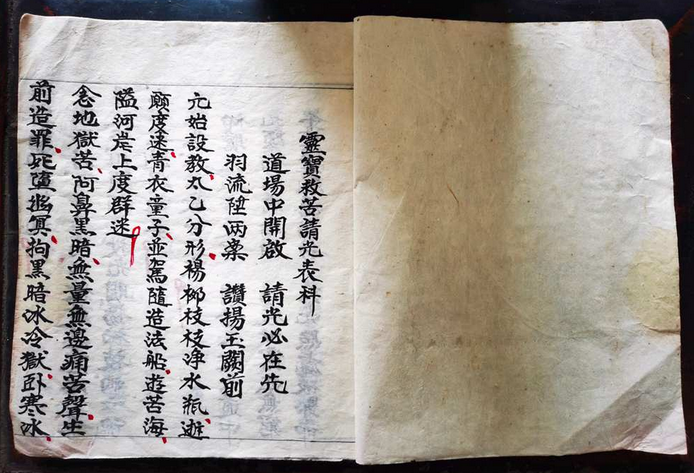 靈寶救苦請光表科
道場中開啟　請光必在先
羽流陞两案　讚揚玉闕前
元始設教太乙分形楊栁枝枝浄水瓶遊
願度迷青衣童子並駕隨造法船遊苦海
隘河岸上度群迷
念地獄苦阿鼻黑暗無量無邊痛苦聲生
前造罪死墮幽冥拘黑暗冰冷獄卧寒冰